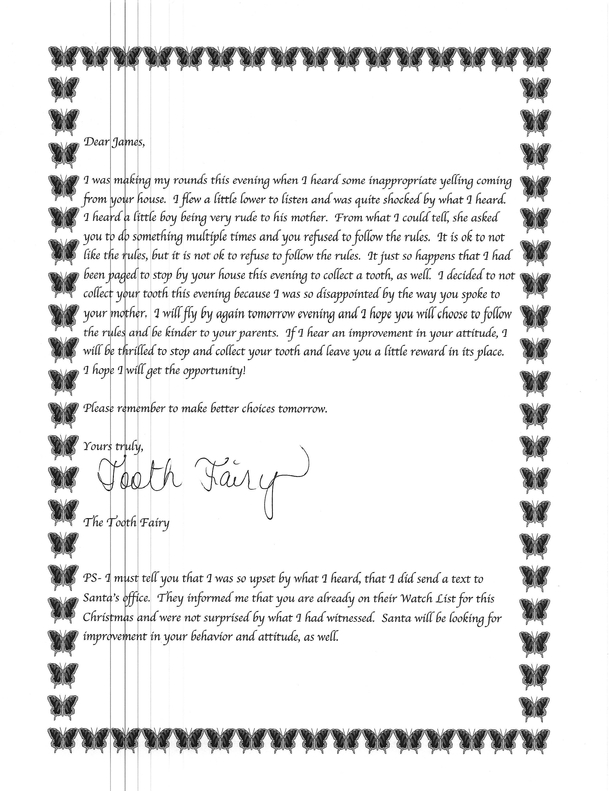 Dear James,
I was making my rounds this evening when I heard some inappropriate yelling coming
from your house. I flew a little lower to listen and was quite shocked by what I heard.
I heard a little boy being very rude to his mother. From what I could tell, she asked
you to do something multiple times and you refused to follow the rules. It is ok to not
like the rules, but it is not ok to refuse to follow the rules. It just so happens that I had
been paged to stop by your house this evening to collect a tooth, as well. I decided to not
collect your tooth this evening because I was so disappointed by the way you spoke to
your mother. I will fly by again tomorrow evening and I hope you will choose to follow
the rules and be kinder to your parents. If I hear an improvement in your attitude, I
will be thrilled to stop and collect your tooth and leave you a little reward in its place.
I hope I will get the opportunity!
Please remember to make better choices tomorrow.
Yours truly,
Tooth Fairy
The Tooth Fairy
PS- I must tell you that I was so upset by what I heard, that I did send a text to
Santa's office. They informed me that you are already on their Watch List for this
Christmas and were not surprised by what I had witnessed. Santa will be looking for
improvement in your behavior and attitude, as well.